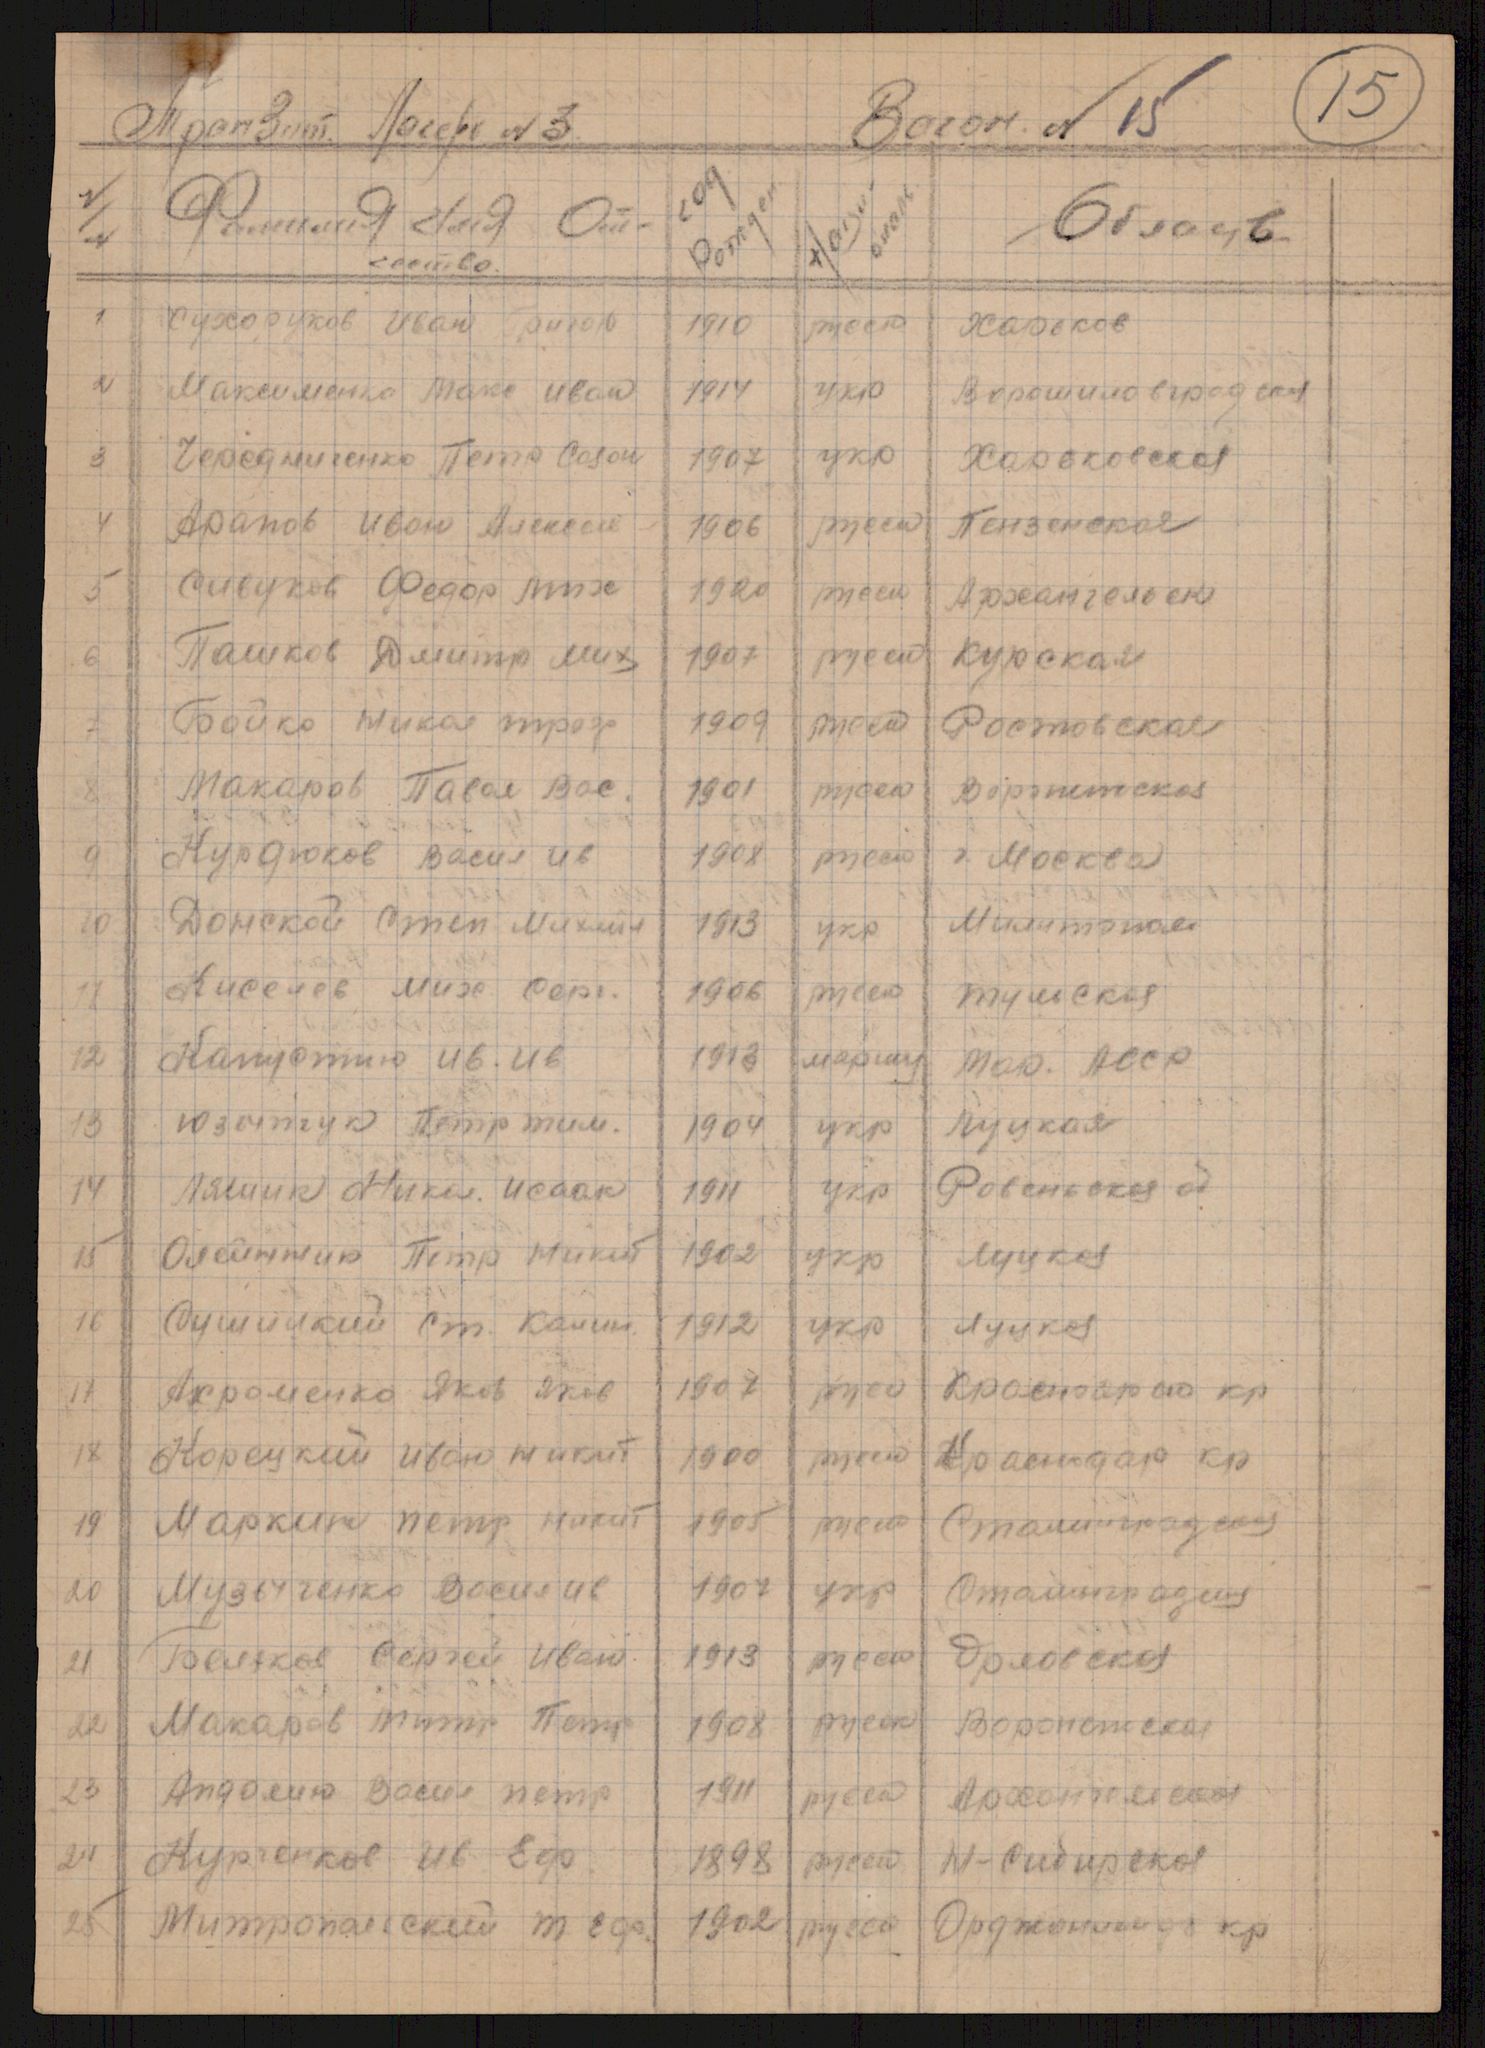 Транзит. Лагерь N 3. Вагон. N 15 15
N/N Фамилия Имя От- год Рожден Наци- Область
чество. ональ
1 Сухоруков Иван Григор 1910 русск Харьков
2 Максименко Макс Иван 1914 укр Ворошиловградская
3 Чередниченко Петр Созон 1907 укр Харьковская
4 Арапов Иван Алексей 1906 русск Пензенская
5 Сивуков Федор Мих 1920 русск Архангельск
6 Пашков Дмитр Мих 1907 русск Курская
7 Бойко Никол 1909 русск Ростовская
8 Макаров Павел Вас. 1901 русск Воронежская
9 Курдюков Васил Ив 1908 русск г. Москва
10 Донской Степ Михайл 1913 укр Милитопол
11 Киселев Мих Серг. 1906 русск Тульская
12 Капустин Ив. Ив 1913 мариец Мар. АССР
13 Юзыпчук Петр Тим. 1904 укр Луцкая
14 Ляшик Никол. Исаак 1911 укр Ровеньская об
15 Олейнник Петр Никит 1902 укр Луцкая
16 Сушицкий Ст. Калин. 1912 укр Луцкая
17 Акроменко Яков Яков 1907 русс Краснодарск кр
18 Корецкий Иван Никит 1900 русск Краснодар кр
19 Маркин Петр Никит 1905 русск Сталинградская
20 Музыченко Васил Ив 1907 укр Сталинградск
21 Беляков Сергей Иван. 1913 русск Орловская
22 Макаров Митр Петр 1908 русск Воронежская
23 Васил Петр 1911 русск Архангельская
24 Курченков Ив Еф. 1898 русск Н-Сибирская
25 Митропольский Т Еф. 1902 русск Орджоникидз кр